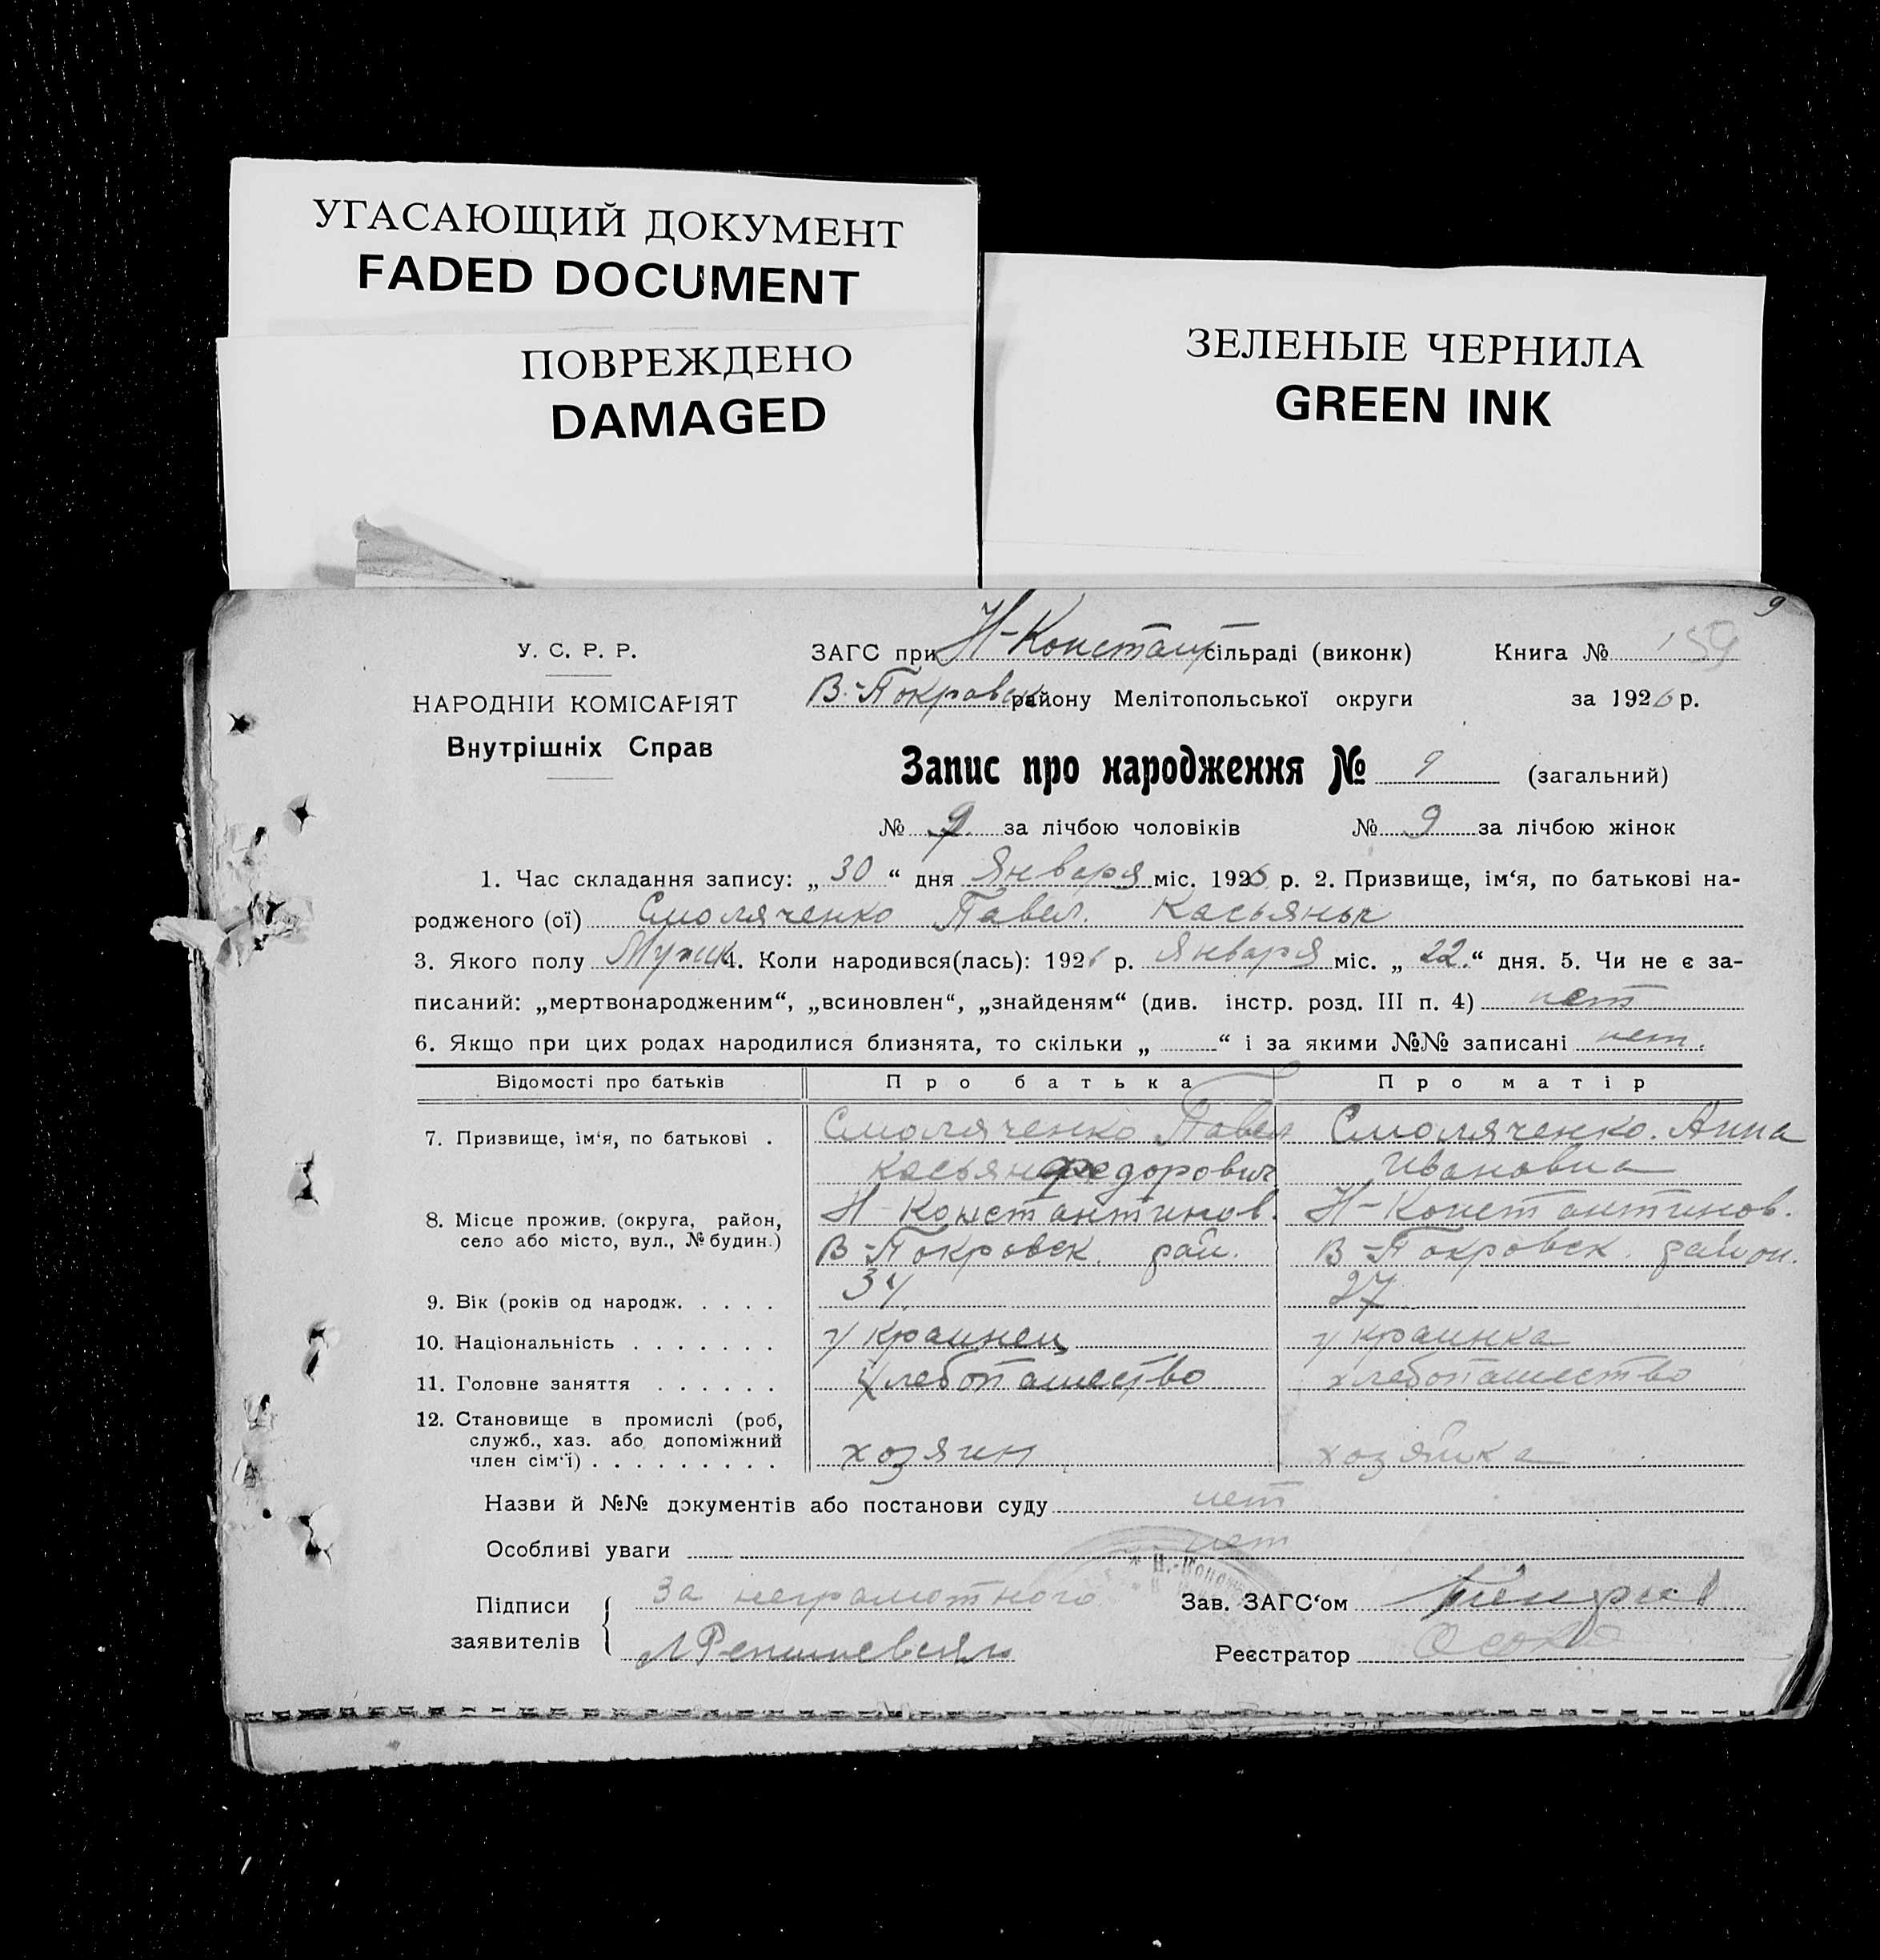 УГАСАЮЩИЙ ДОКУМЕНТ
FADED DOCUMENT
ПОВРЕЖДЕНО
DAMAGED
ЗЕЛЕНЫЕ ЧЕРНИЛА
GREEN INK
9
У. С. Р. Р.
НАРОДНІЙ КОМІСАРІЯТ
Внутрішніх Справ
ЗАГС при Н-Констант сільраді (виконк) Книга № 159
В.-Покровск району Мелітопольської округи за 1926 р.
Запис про народження № 9 (загальний)
№ 9 за лічбою чоловіків № 9 за лічбою жінок
1. Час складання запису: „ 30 “ дня Января міс. 1926 р. 2. Призвище, ім‘я, по батькові на-
родженого (ої) Смоляченко Павел. Касьяньк
3. Якого полу Мужик 4. Коли народився(лась): 1926 р. Января міс. „ 22. “ дня. 5. Чи не є за-
писаний: „мертвонародженим“, „всиновлен“, „знайденям“ (див. інстр. розд. III п. 4) нет
6. Якщо при цих родах народилися близнята, то скільки „ “ і за якими №№ записані нет.
Відомості про батьків Про батька Про матір
7. Призвище, ім‘я, по батькові . Смоляченко Павел Смоляченко. Анна
Касьян Федорович Ивановна
8. Місце прожив. (округа, район, Н-Константинов. Н-Константинов.
село або місто, вул., № будин.) В-Покровск. рай. В-Покровск. район.
9. Вік (років од народж. . . . . 34. 27
10. Національність . . . . . . . украинец украинка
11. Головне заняття . . . . . . хлебопашество хлебопашество
12. Становище в промислі (роб,
служб., хаз. або допоміжний
член сім‘ї) . . . . . . . . . хозяин хозяйка
Назви й №№ документів або постанови суду нет
Особливі уваги нет
Підписи заявителів За неграмотного
Зав. ЗАГС‘ом
Реєстратор